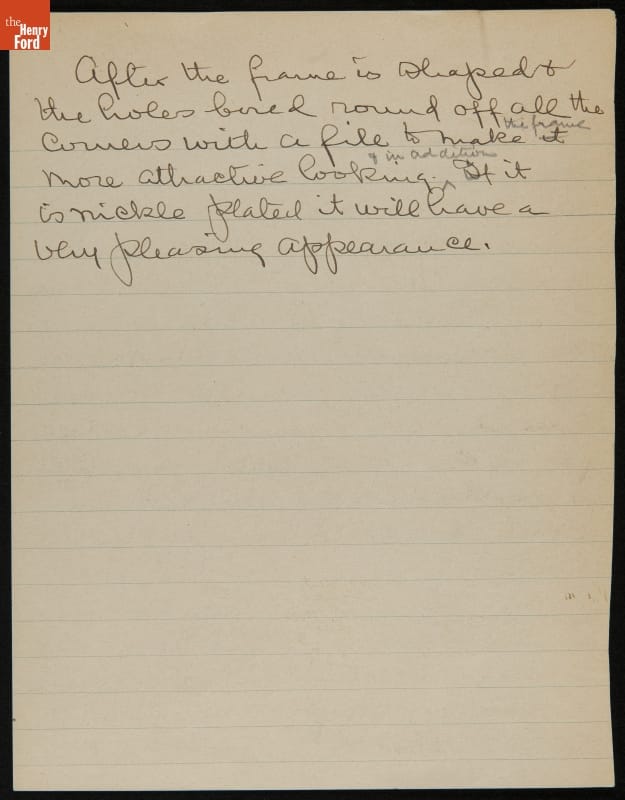 the
Henry
Ford
After the frame is shaped &
the holes bored round off all the
the frame
corners with a file to make it
& in addition
more attractive looking. If it
is nickle plated it will have a
very pleasing appearance.